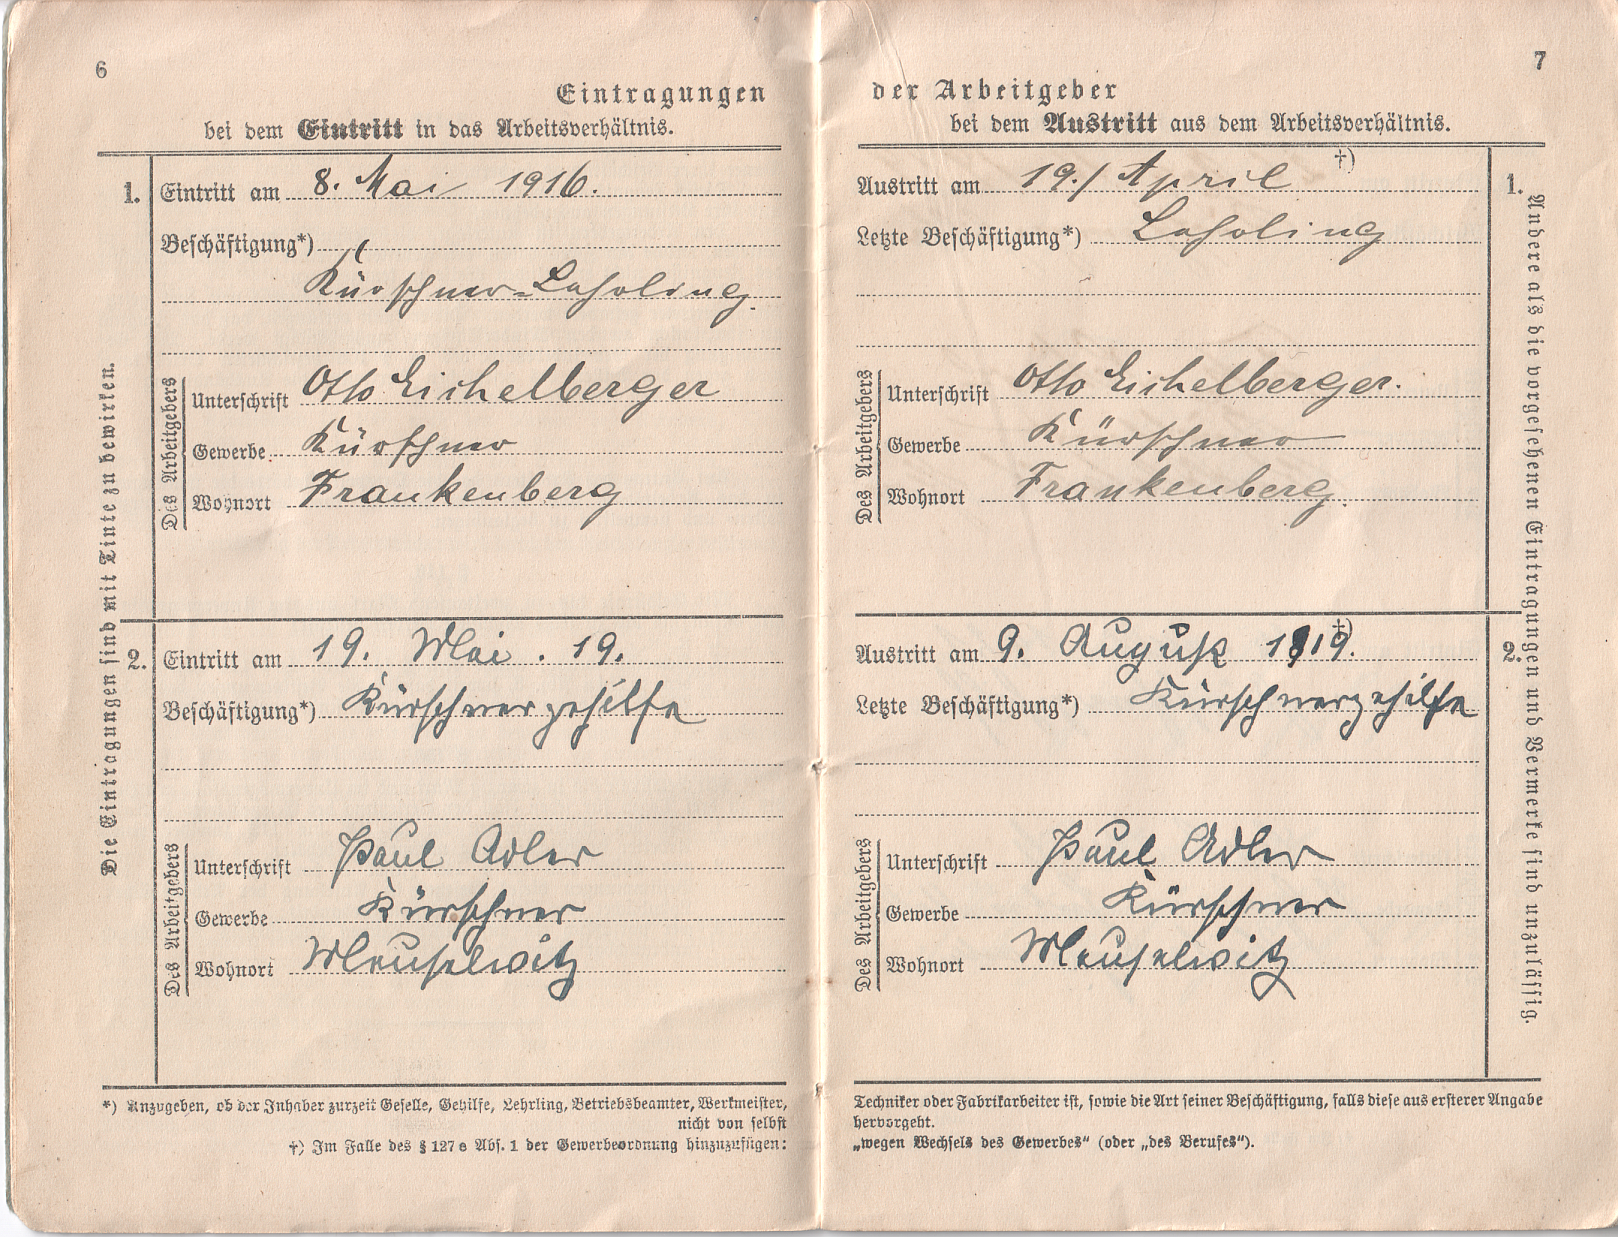 6
Eintragungen
bei dem Eintritt in das Arbeitsverhältnis.
1.
Eintritt am 8. Mai 1916.
Beschäftigung*)
Kürschner-Lehrling.
Des Arbeitgebers
Unterschrift Otto Eichelberger
Gewerbe Kürschner
Wohnort Frankenberg
2.
Eintritt am 19. Mai. 19.
Beschäftigung*) Kürschnergehilfe
Des Arbeitgebers
Unterschrift Paul Adler
Gewerbe Kürschner
Wohnort Meuselwitz
Die Eintragungen sind mit Tinte zu bewirken.
*) Anzugeben, ob der Inhaber zurzeit Geselle, Gehilfe, Lehrling, Betriebsbeamter, Werkmeister,
nicht von selbst
†) Im Falle des § 127 e Abs. 1 der Gewerbeordnung hinzuzufügen:
7
der Arbeitgeber
bei dem Austritt aus dem Arbeitsverhältnis.
1.
Austritt am 19./ April †)
Letzte Beschäftigung*) Lehrling
Des Arbeitgebers
Unterschrift Otto Eichelberger.
Gewerbe Kürschner
Wohnort Frankenberg.
2.
Austritt am 9. August 1919. †)
Letzte Beschäftigung*) Kürschnergehilfe
Des Arbeitgebers
Unterschrift Paul Adler
Gewerbe Kürschner
Wohnort Meuselwitz
Andere als die vorgesehenen Eintragungen und Vermerke sind unzulässig.
Techniker oder Fabrikarbeiter ist, sowie die Art seiner Beschäftigung, falls diese aus ersterer Angabe
hervorgeht.
„wegen Wechsels des Gewerbes“ (oder „des Berufes“).